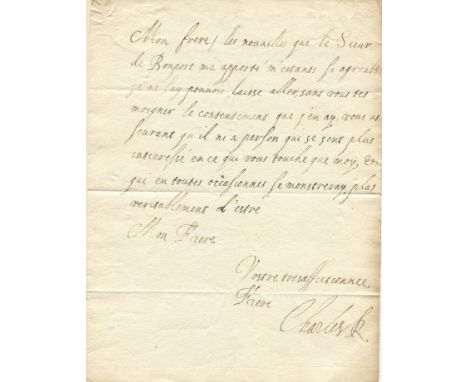 Mon frere, les nouvelles que le Sieur
de Bonport m'a apporté m'estants si agreables
je ne l'ay pouvois laisse aller, sans vous tes
moigner le contentement que j'en ay, vous as
seurant qu'il ni a person qui se sent plus
interessé en ce qui vous touche que moy,
qui en toutes occasionnes se monstreray plus
veritablement d'estre
Mon Frere
Vostre tresaffectionnee
Frere
Charles R